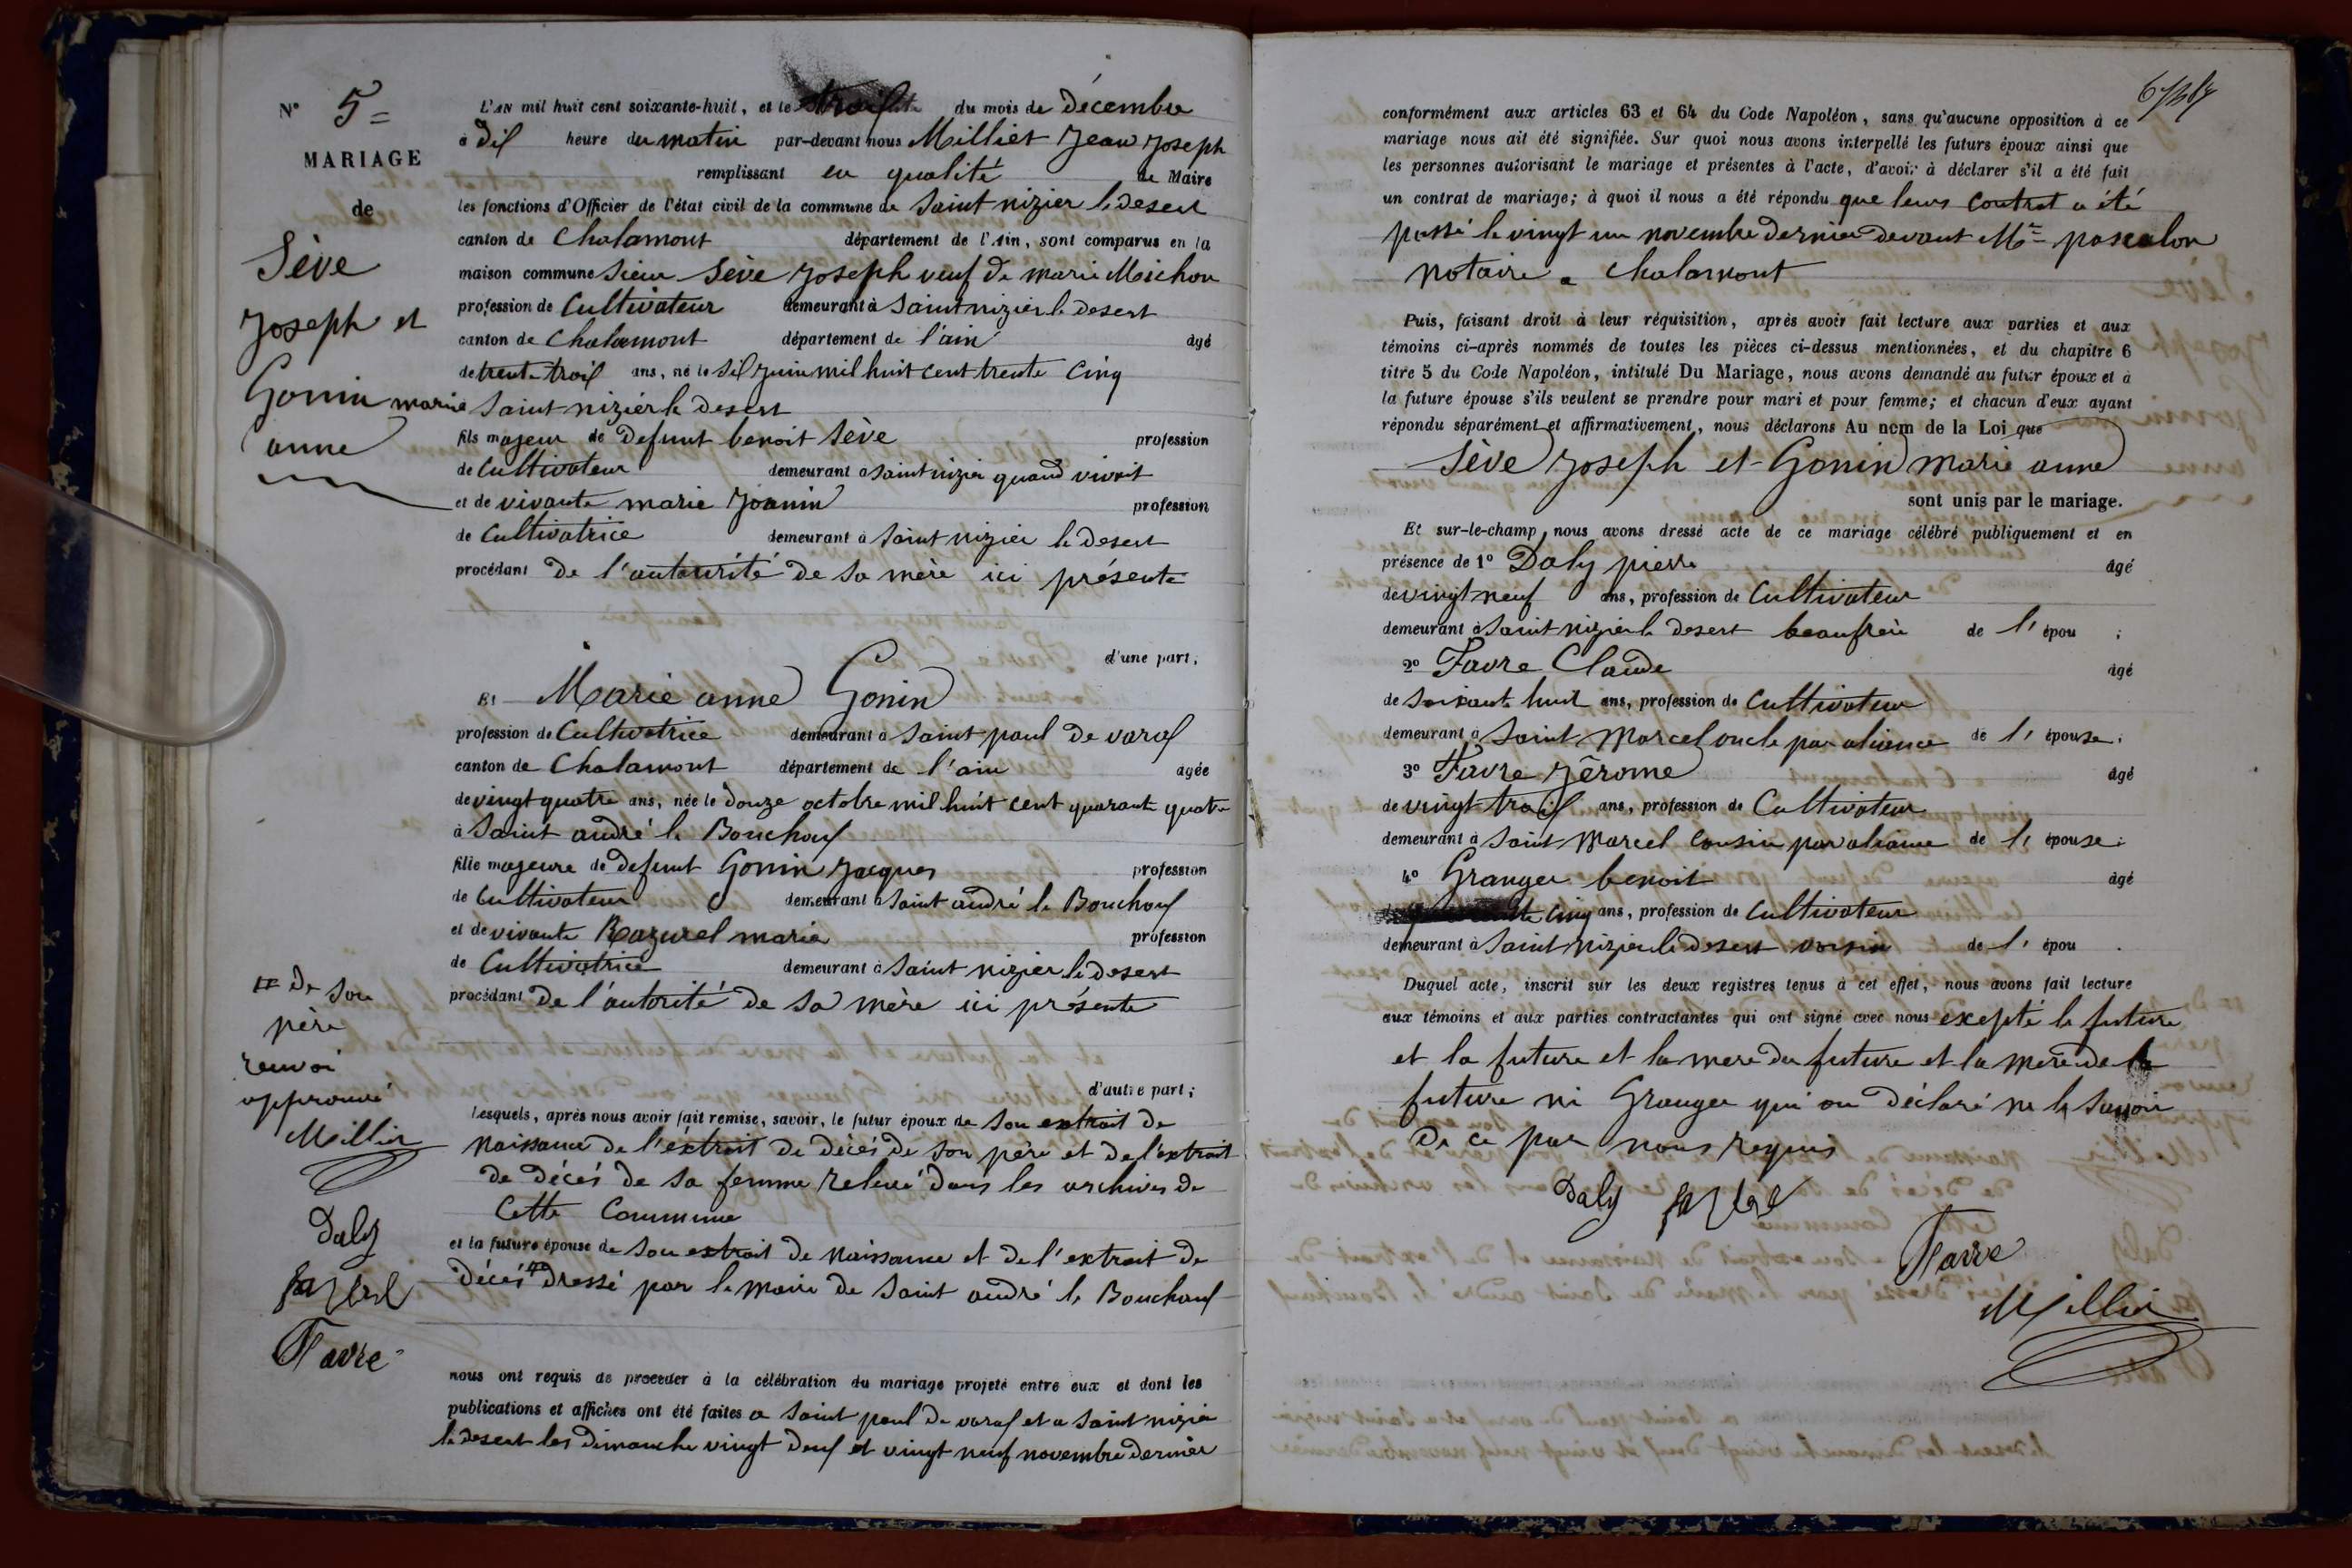 N° 5=
MARIAGE
de
Sève
Joseph et
Gonin marie
anne
L'AN mil huit cent soixante-huit, et le trois du mois de décembre
à dix heure du matin par-devant nous Milliet Jean Joseph
remplissant en qualité de Maire
les fonctions d'Officier de l'état civil de la commune de Saint nizier le desert
canton de Chalamont département de l'Ain, sont comparus en la
maison commune Sieur Sève Joseph veuf de marie Moichon
profession de Cultivateur demeurant à Saint nizier le desert
canton de Chalamont département de l'ain âgé
de trente trois ans, né le Six juin mil huit cent trente cinq
Saint nizier le desert
fils majeur de defunt benoit Sève profession
de Cultivateur demeurant à Saint nizier quand vivait
et de vivante marie Joanin profession
de Cultivatrice demeurant à Saint nizier le desert
procédant de l'autorité de sa mère ici présente
d'une part;
Et Marie anne Gonin
profession de Cultivatrice demeurant à Saint paul de varax
canton de Chalamont département de l'ain âgée
de vingt quatre ans, née le douze octobre mil huit cent quarant quatre
à Saint andré le Bouchoux
fille majeure de defunt Gonin Jacques profession
de Cultivateur demeurant à Saint andré le Bouchoux
et de vivante Razurel marie profession
de Cultivatrice demeurant à Saint nizier le desert
procédant de l'autorité de sa mère ici présente
d'autre part;
lesquels, après nous avoir fait remise, savoir, le futur époux de son extrait de
naissance de l'extrait de décès de son père et de l'extrait
de décès de sa femme relevé dans les archives de
cette Commune
et la future épouse de son extrait de naissance et de l'extrait de
décès # dressé par le maire de Saint andré le Bouchoux
nous ont requis de procéder à la célébration du mariage projeté entre eux et dont les
publications et affiches ont été faites a Saint paul de varax et a Saint nizier
le desert les dimanche vingt deux et vingt neuf novembre dernier
# de son
père
renvoi
approuvé
Millier
Daly
Favre
conformément aux articles 63 et 64 du Code Napoléon, sans qu'aucune opposition à ce
mariage nous ait été signifiée. Sur quoi nous avons interpellé les futurs époux ainsi que
les personnes autorisant le mariage et présentes à l'acte, d'avoir à déclarer s'il a été fait
un contrat de mariage; à quoi il nous a été répondu que leurs contrat a été
passé le vingt un novembre dernier devant Me pascalon
notaire a Chalamont
Puis, faisant droit à leur réquisition, après avoir fait lecture aux parties et aux
témoins ci-après nommés de toutes les pièces ci-dessus mentionnées, et du chapitre 6
titre 5 du Code Napoléon, intitulé Du Mariage, nous avons demandé au futur époux et à
la future épouse s'ils veulent se prendre pour mari et pour femme; et chacun d'eux ayant
répondu séparément et affirmativement, nous déclarons Au nom de la Loi que
Sève Joseph et Gonin marie anne
sont unis par le mariage.
Et sur-le-champ nous avons dressé acte de ce mariage célébré publiquement et en
présence de 1° Daly pierre âgé
de vingt neuf ans, profession de Cultivateur
demeurant à Saint nizier le desert beaufrère de l' épou ;
2° Favre Claude âgé
de soixante huit ans, profession de Cultivateur
demeurant à Saint Marcel oncle par alience de l' épouse;
3° Favre Jérome âgé
de vingt trois ans, profession de Cultivateur
demeurant à Saint Marcel Cousin par aliance de l' épouse;
4° Granger benoit âgé
cinq ans, profession de Cultivateur
demeurant à Saint nizier le desert voisin de l' épou .
Duquel acte, inscrit sur les deux registres tenus à cet effet, nous avons fait lecture
aux témoins et aux parties contractantes qui ont signé avec nous excepté le future
et la future et la mere du future et la mere de la
future ni Granger qui on déclaré ne le savoir
de ce par nous requis
Daly
Favre
Millier